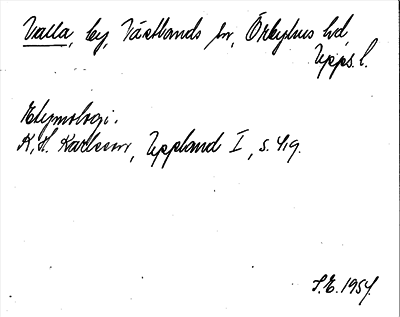 Valla, by, Västlands sn, Örbyhus hd
Upps. l.
Etymologi.
K. H. Karlsson, Uppland I, s. 419.
S.E. 1954.